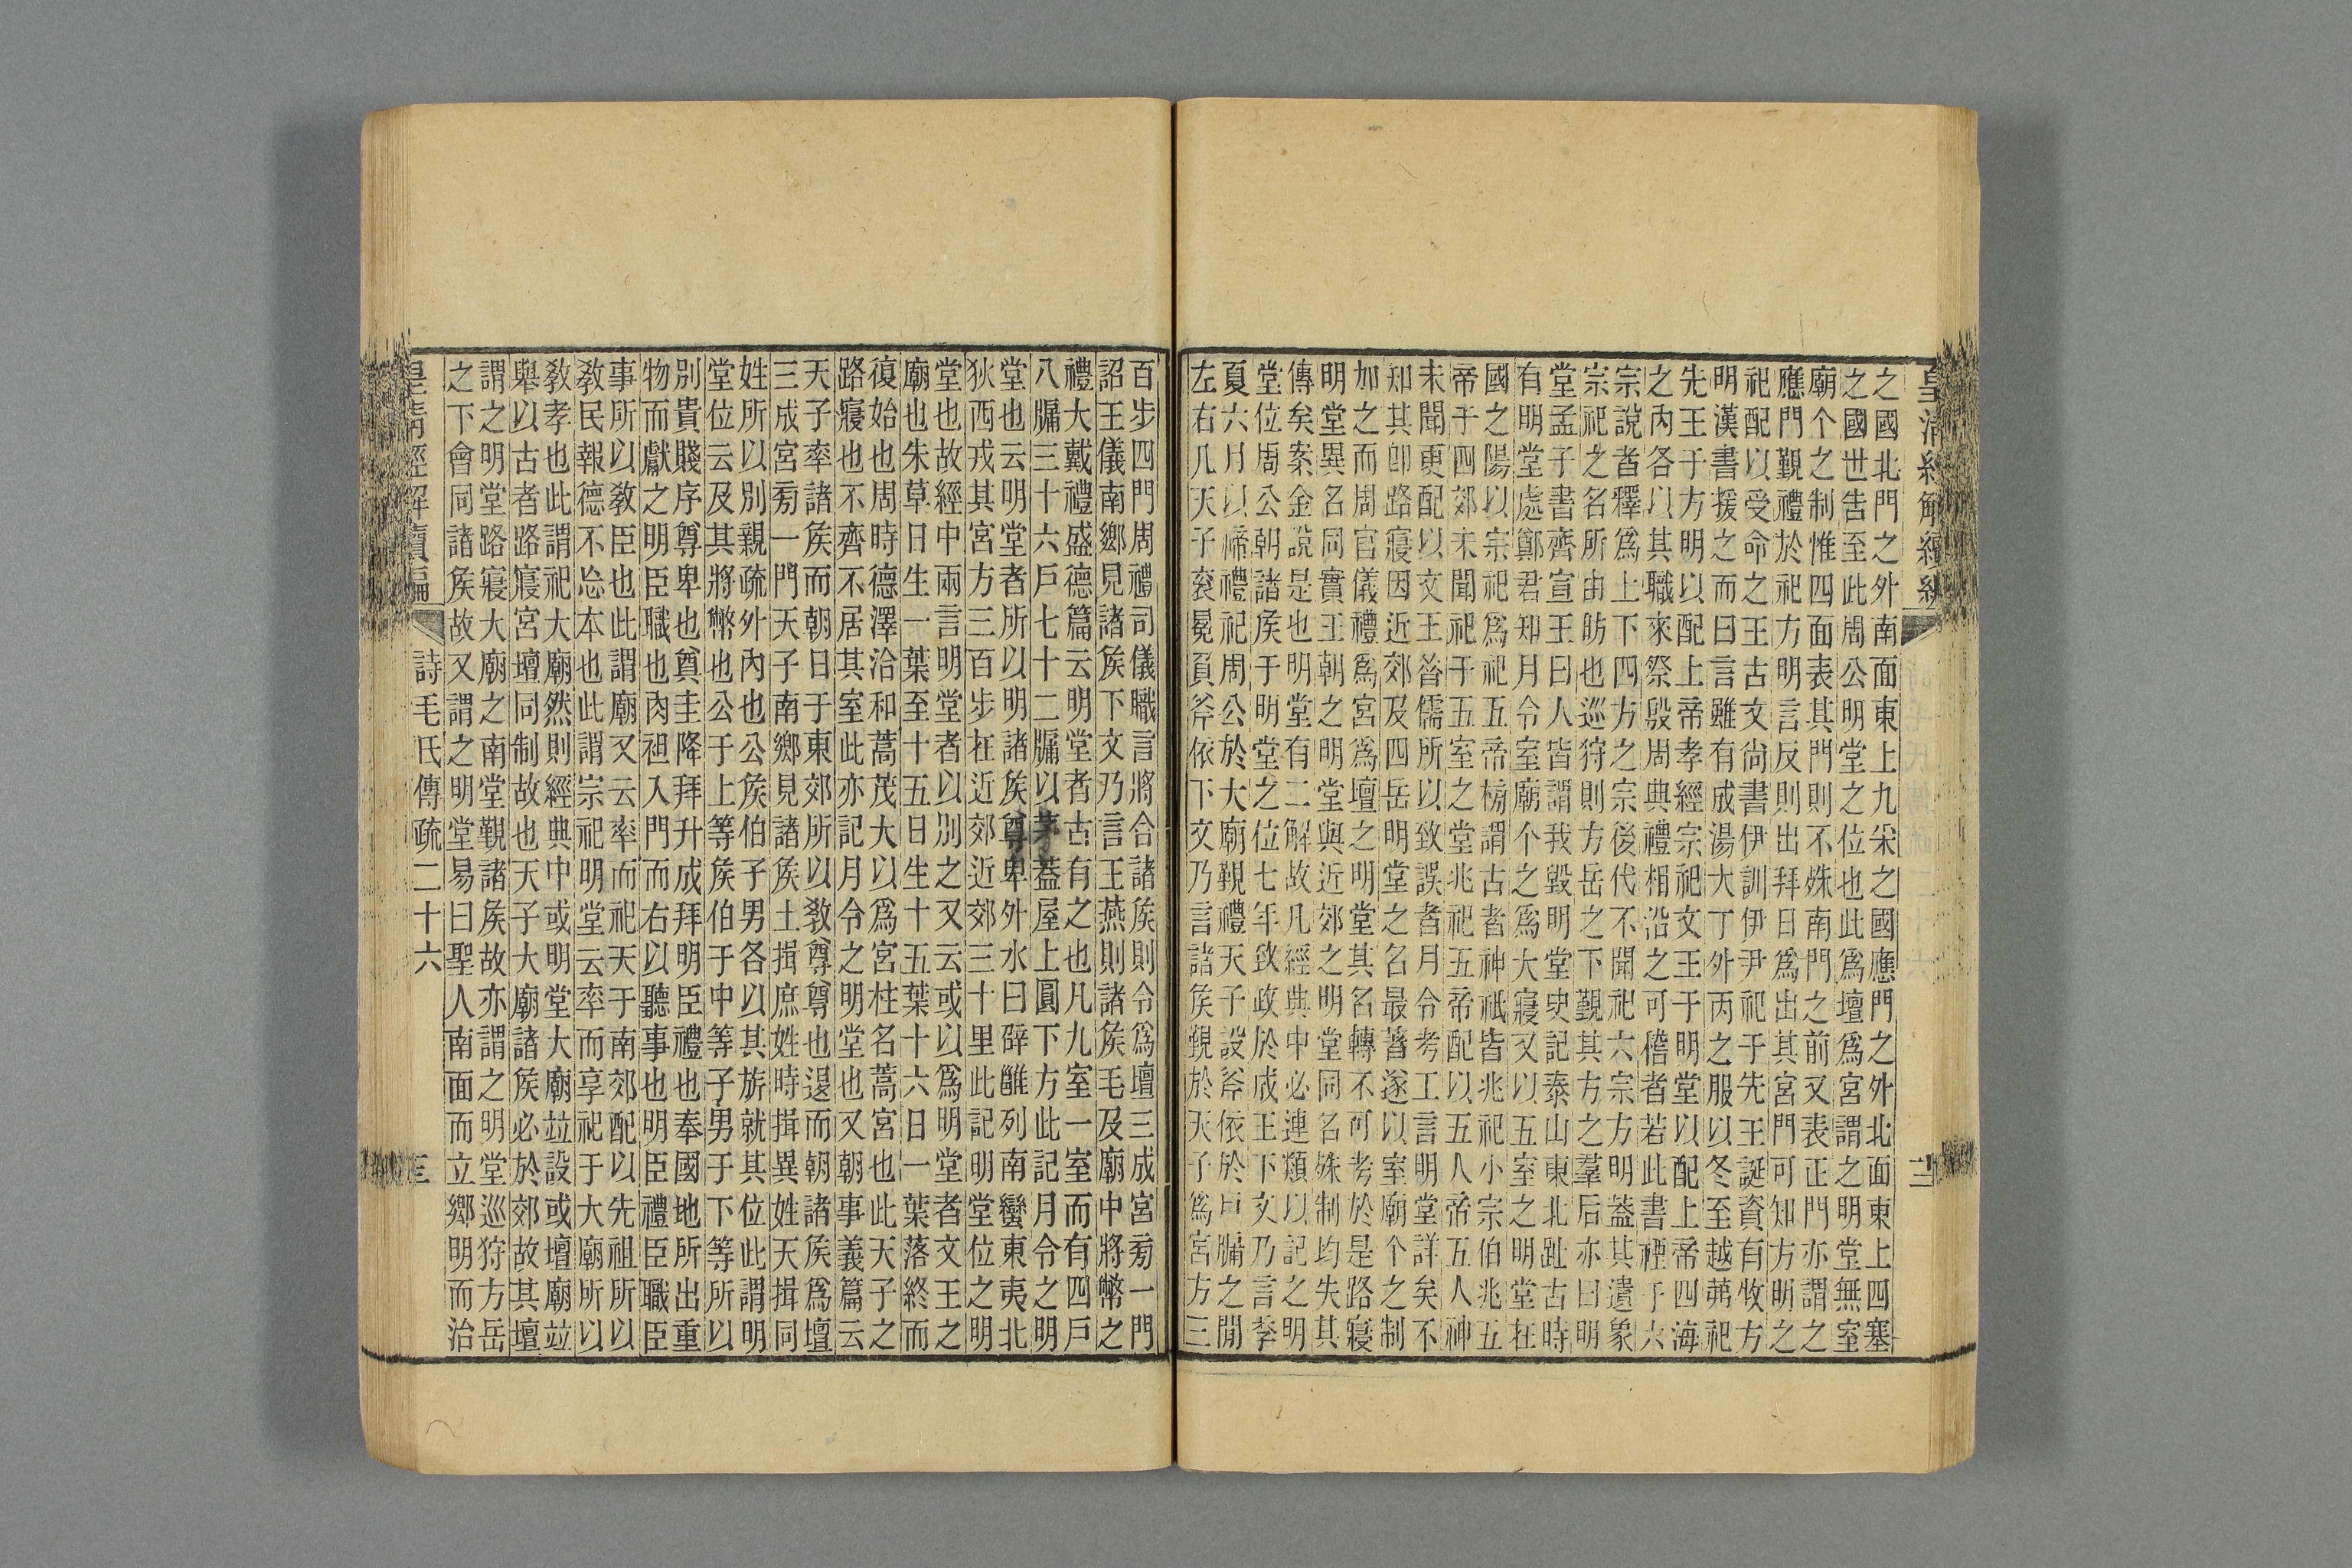 皇清經解續編
之國北門之外南面東上九采之國應門之外北面東上四塞
之國世告至此周公明堂之位也此爲壇爲宮謂之明堂無室
廟个之制惟四面表其門則不姝南門之前又表正門亦謂之
應門覲禮於祀方明言反則出拜日爲出其宮門可知方明之
祀配以受命之王古文尚書伊訓伊尹祀于先王誕資有牧方
明漢書援之而曰言雖有成湯大丁外丙之服以冬至越茀祀
先王于方明以配上帝孝經宗祀文王于明堂以配上帝四海
之內各以其職來祭殷周典禮相沿之可稽者若此書禋于六
宗說者釋爲上下四方之宗後代不聞祀六宗方明蓋其遺象
宗祀之名所由昉也巡狩則方岳之下覲其方之羣后亦曰明
堂孟子書齊宣王曰人皆謂我毀明堂史記泰山東北趾古時
有明堂處鄭君知月令室廟个之爲大寢又以五室之明堂在
國之陽以宗祀爲祀五帝榜謂古者神祇皆兆祀小宗伯兆五
帝于四郊未聞祀于五室之堂兆祀五帝配以五人帝五人神
未聞更配以文王昝儒所以致誤者月令考工言明堂詳矣不
知其卽路寢因近郊及四岳明堂之名最著遂以室廟个之制
加之而周官儀禮爲宮爲壇之明堂其名轉不可考於是路寢
明堂異名同實王朝之明堂與近郊之明堂同名姝制均失其
傳矣案金說是也明堂有二解故凡經典中必連類以記之明
堂位周公朝諸侯于明堂之位七年致政於成王下文乃言季
夏六月以禘禮祀周公於大廟覲禮天子設斧依於戶牖之閒
左右几天子袞冕負斧依下文乃言諸侯覲於天子爲宮方三
百步四門周禮司儀職言將合諸侯則令爲壇三成宮㫄一門
詔王儀南鄉見諸侯下文乃言王燕則諸侯毛及廟中將幣之
禮大戴禮盛德篇云明堂者古有之也凡九室一室而有四戶
八牖三十六戶七十二牖以茅蓋屋上圓下方此記月令之明
堂也云明堂者所以明諸侯尊卑外水曰辟雝列南蠻東夷北
狄西戎其宮方三百步在近郊近郊三十里此記明堂位之明
堂也故經中兩言明堂者以別之又云或以爲明堂者文王之
廟也朱草日生一葉至十五日生十五葉十六日一葉落終而
復始也周時德澤洽和蒿茂大以爲宮柱名蒿宮也此天子之
路寢也不齊不居其室此亦記月令之明堂也又朝事義篇云
天子率諸侯而朝日于東郊所以教尊尊也退而朝諸侯爲壇
三成宮㫄一門天子南鄉見諸侯土揖庶姓時揖異姓天揖同
姓所以別親疏外內也公侯伯子男各以其旂就其位此謂明
堂位云及其將幣也公于上等侯伯于中等子男于下等所以
別貴賤序尊卑也奠圭降拜升成拜明臣禮也奉國地所出重
物而獻之明臣職也內袒入門而右以聽事也明臣禮臣職臣
事所以教臣也此謂廟又云率而祀天于南郊配以先祖所以
敎民報德不忘本也此謂宗祀明堂云率而享祀于大廟所以
敎孝也此謂祀大廟然則經典中或明堂大廟竝設或壇廟竝
舉以古者路寢宮壇同制故也天子大廟諸侯必於郊故其壇
謂之明堂路寢大廟之南堂覲諸侯故亦謂之明堂巡狩方岳
之下會同諸侯故又謂之明堂易曰聖人南面而立鄉明而治
皇清經解續編 詩毛氏傳疏二十六